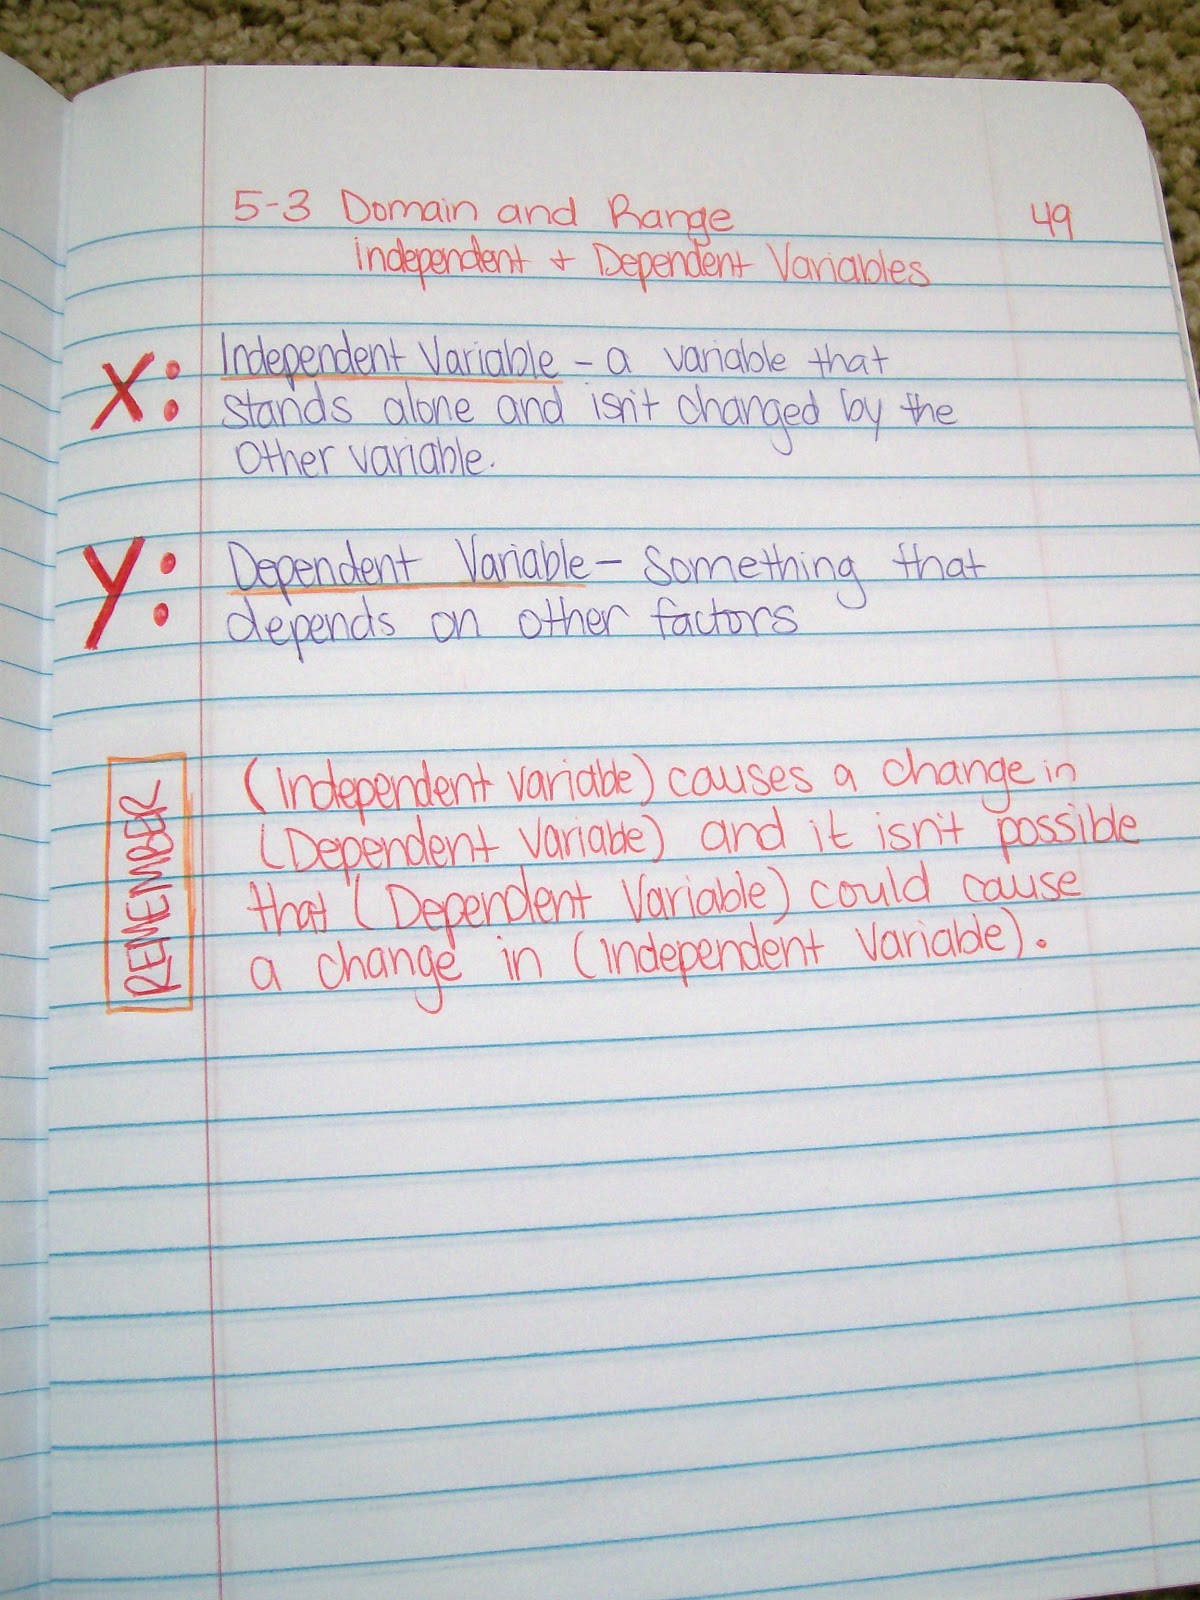 5-3 Domain and Range 49
Independent + Dependent Variables
X: Independent Variable - a variable that
stands alone and isn't changed by the
other variable.
Y: Dependent Variable - Something that
depends on other factors
REMEMBER
(Independent variable) causes a change in
(Dependent Variable) and it isn't possible
that (Dependent Variable) could cause
a change in (Independent Variable).